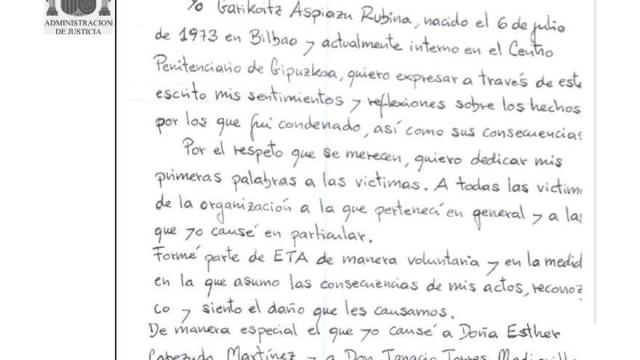 ADMINISTRACION
DE JUSTICIA
Yo Garikoitz Aspiazu Rubina, nacido el 6 de julio
de 1973 en Bilbao y actualmente interno en el Centro
Penitenciario de Gipuzkoa, quiero expresar a través de este
escrito mis sentimientos y reflexiones sobre los hechos
por los que fui condenado, así como sus consecuencias
Por el respeto que se merecen, quiero dedicar mis
primeras palabras a las victimas. A todas las victim
de la organización a la que pertenecí en general y a las
que yo causé en particular.
Formé parte de ETA de manera voluntaria y en la medid
en la que asumo las consecuencias de mis actos, reconoz
co y siento el daño que les causamos.
De manera especial el que yo causé a Doña Esther
Cabezudo Martínez y a Don Ignacio Torres Madinilla